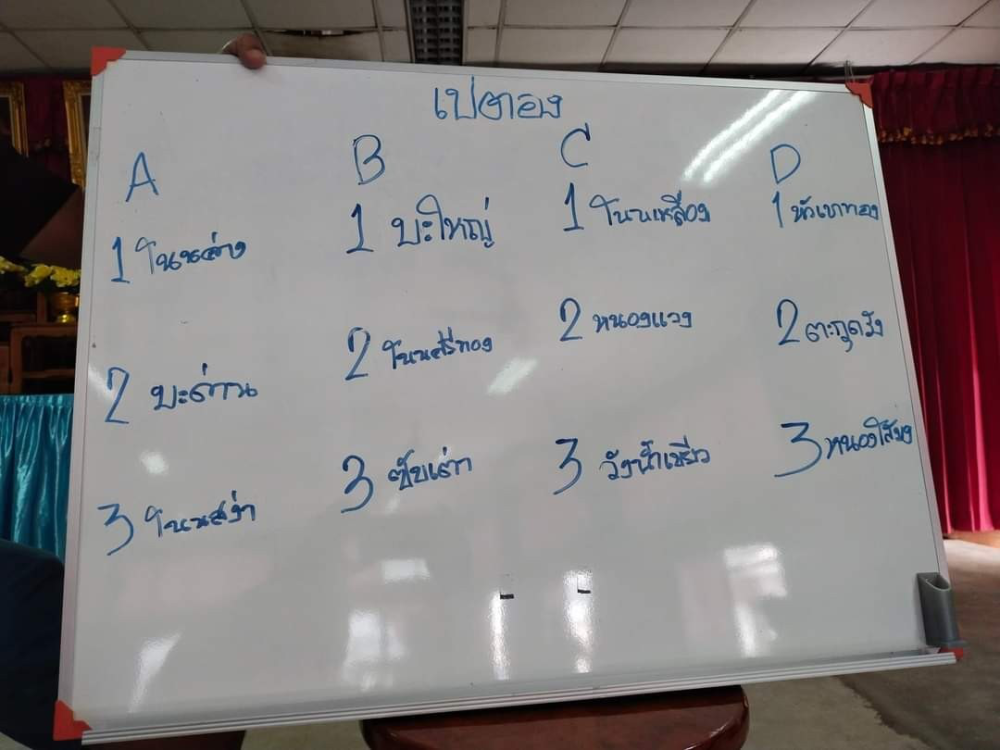 เปตอง
A
1 โนนล่าง
2 มะค่าน
3 โนนสง่า
B
1 บะใหญ่
2 โนนศรีทอง
3 ซับเต่า
C
1 โนนเหลือง
2 หนองแวง
3 วังน้ำเขียว
D
1 หัวเขาทอง
2 ตะกุดรัง
3 หนองไสบง